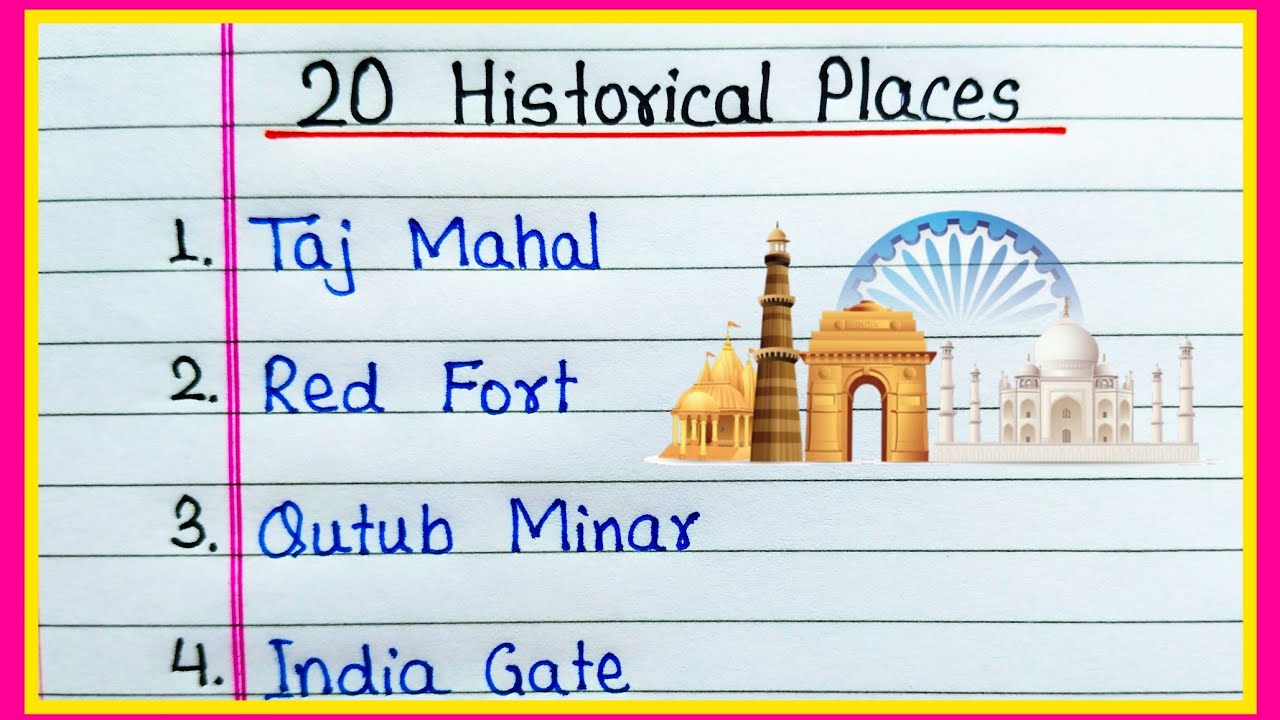 20 Historical Places
1. Taj Mahal
2. Red Fort
3. Qutub Minar
4. India Gate